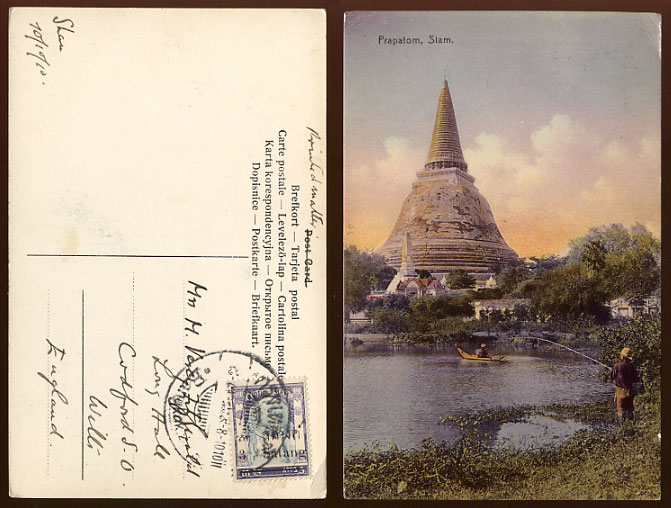 10/10/10.
Printed matter
Post Card
Brefkort — Tarjeta postal
Carte postale — Levelező-lap — Cartolina postale
Karta korespondencyjna — Открытое письмо
Dopisnice — Postkarte — Briefkaart.
Long Hall
Codford S. O.
Wilts
England
Prapatom, Siam.